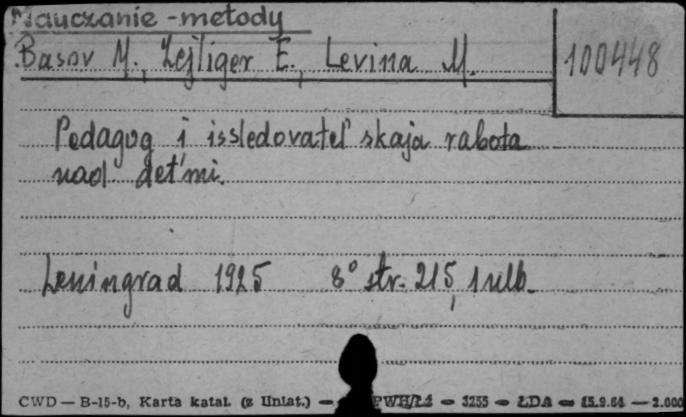 Nauczanie - metody
Basov M., Zejliger E., Levina M.
100448
Pedagog i issledovatel'skaja rabota
nad det'mi.
Leningrad 1925 8° str. 215, 1 nlb.
CWD — B-15-b, Karta katal. (z Uniat.) — PWH/Łd — 3255 — ŁDA — 15.9.64 — 2.000